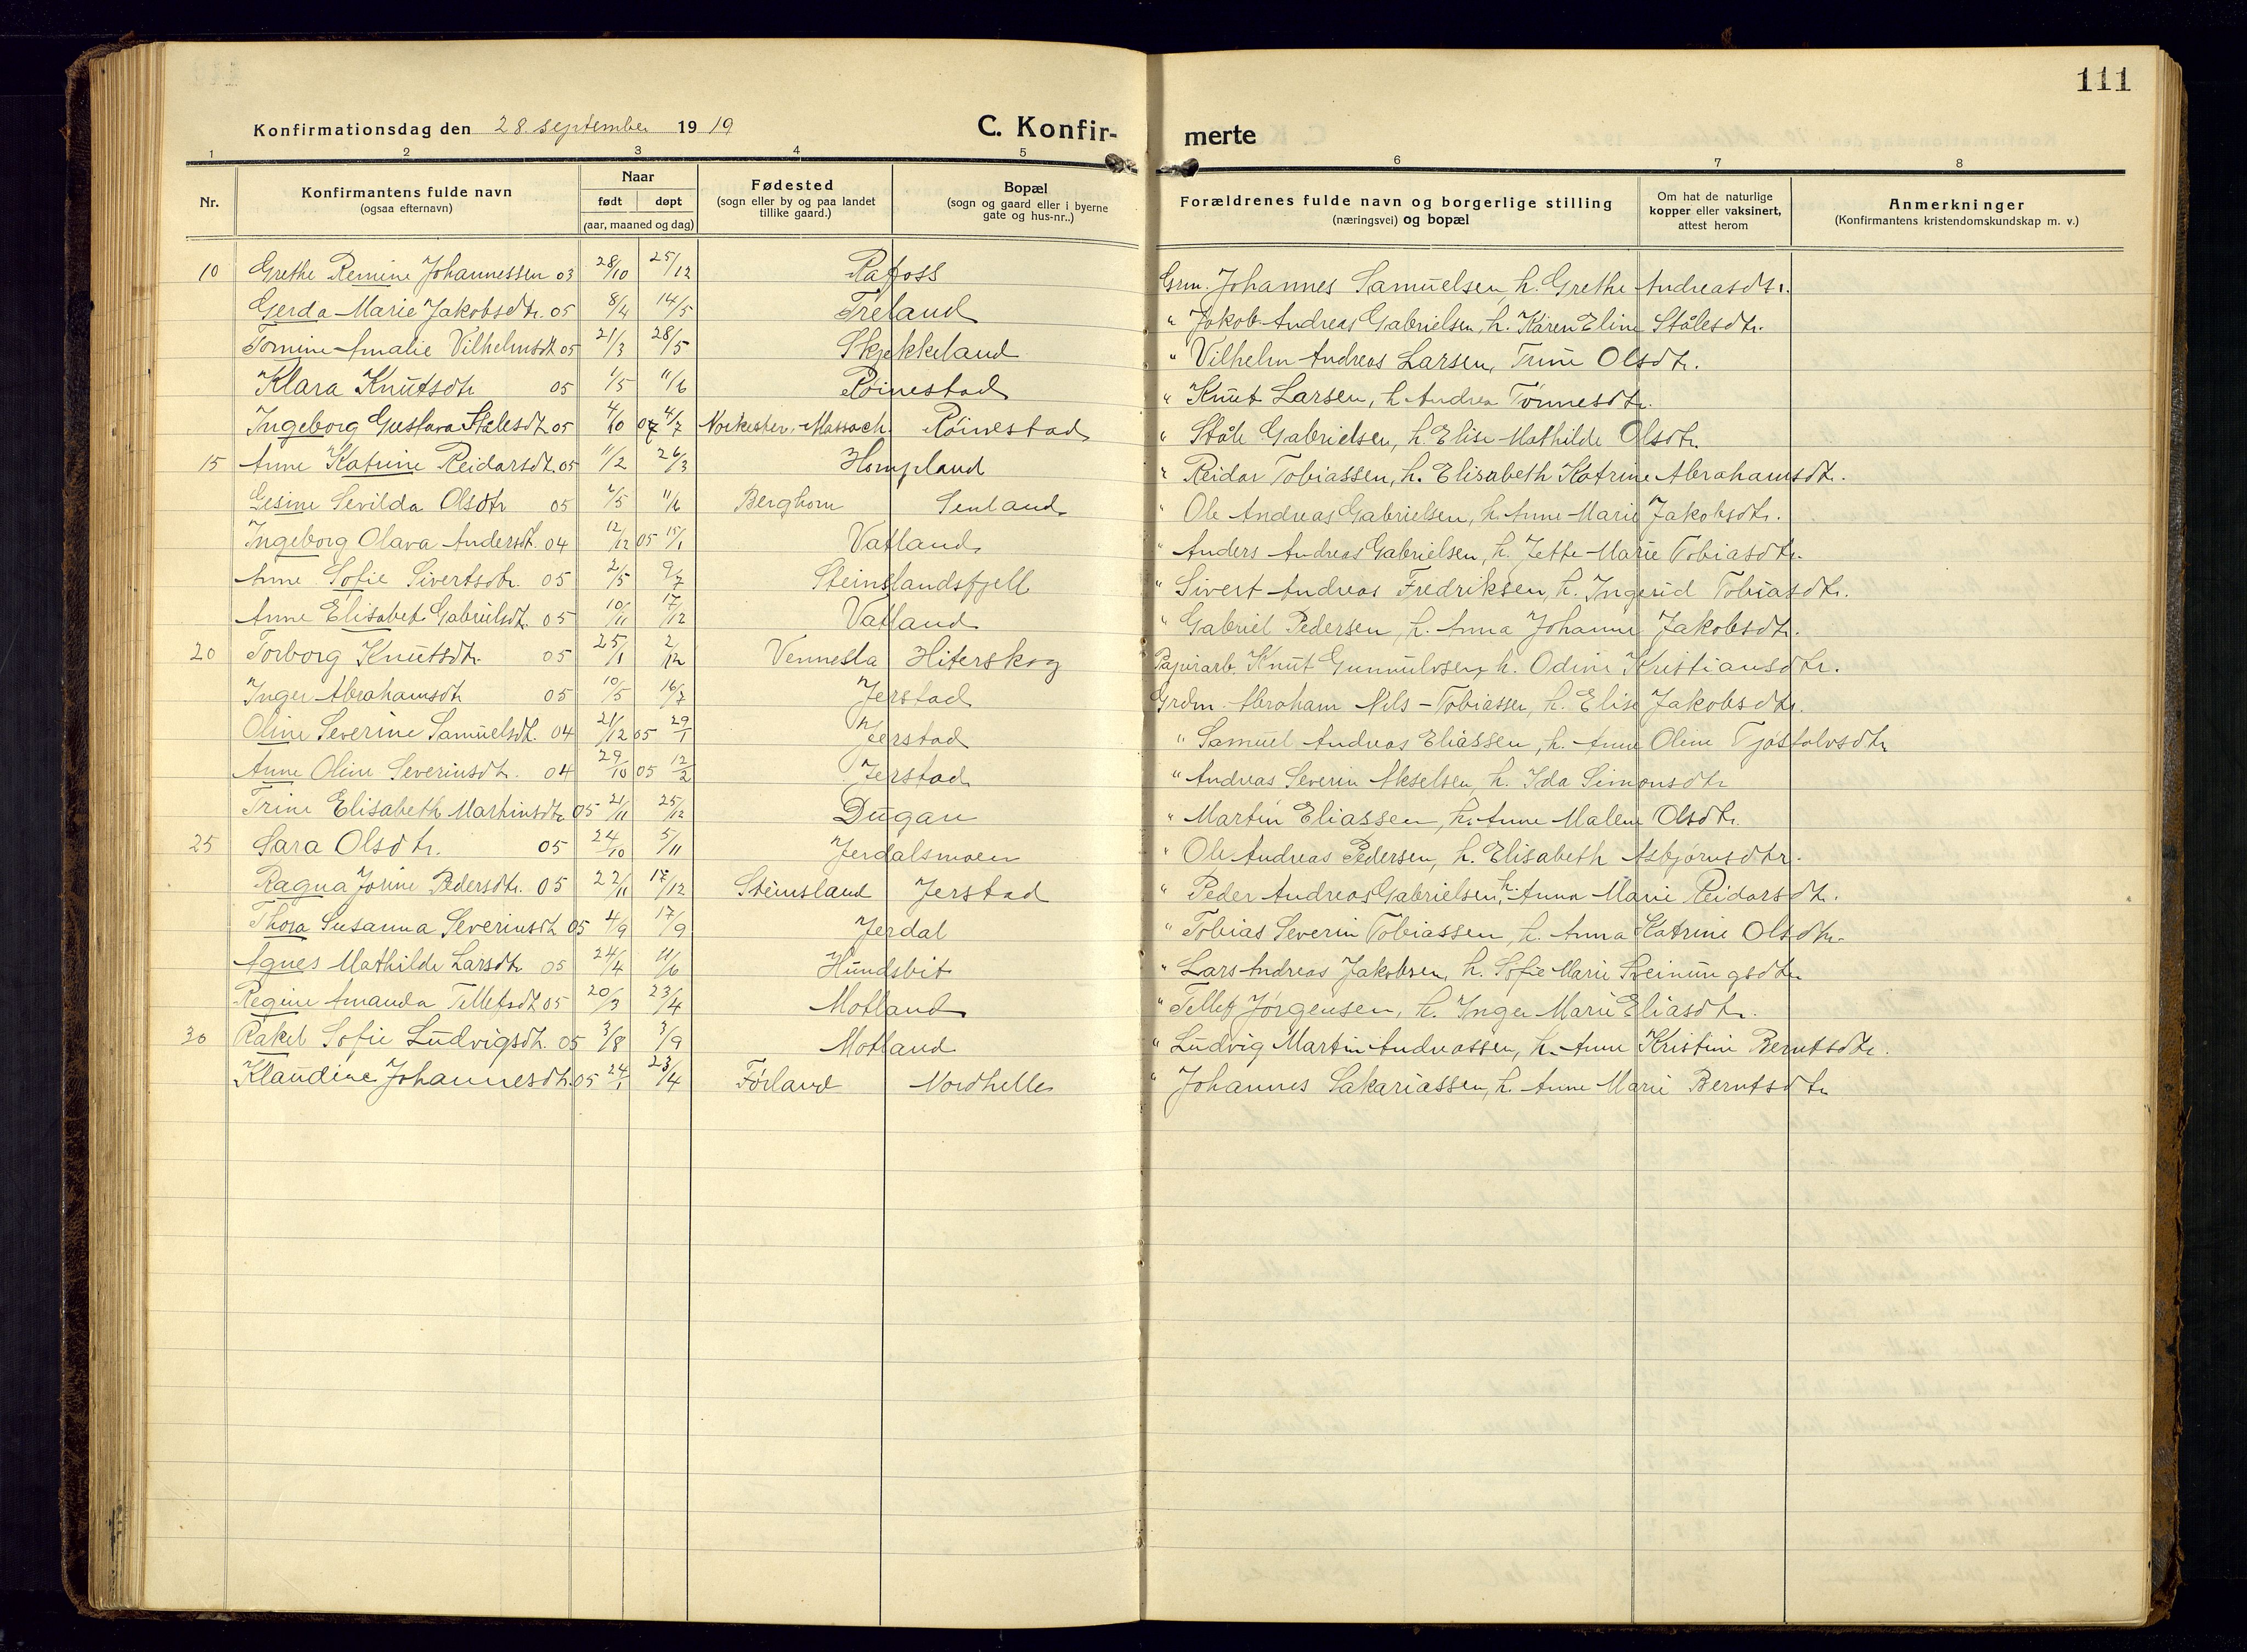 111
Konfirmationsdag den 28. september 1919 C. Konfir- merte
1 2 3 4 5 6 7 8
Nr. Konfirmantens fulde navn (ogsaa efternavn) Naar født døpt (aar, maaned og dag) Fødested (sogn eller by og paa landet tillike gaard.) Bopæl (sogn og gaard eller i byerne gate og hus-nr..) Forældrenes fulde navn og borgerlige stilling (næringsvei) og bopæl Om hat de naturlige kopper eller vaksinert, attest herom Anmerkninger (Konfirmantens kristendomskundskap m. v.)
10 Grethe Remine Johannessen 03 28/10 25/12 Rafoss Grm. Johannes Samuelsen, h. Grethe Andreasdtr.
Gerda Marie Jakobsdtr. 05 8/4 14/5 Treland " Jakob Andreas Gabrielsen, h. Karen Eline Stålesdtr.
Tomine Amalie Vilhelmsdt 05 21/3 28/5 Skjekkeland " Vilhelm Andreas Larsen, Trine Olsdtr.
Klara Knutsdtr 05 1/5 11/6 Røinestad " Knut Larsen, h. Andrea Tønnesdtr.
Ingeborg Gustava Stålesdt 05 4/10 07 4/7 Massach. Røinestad " Ståle Gabrielsen, h. Elise Mathilde Olsdtr.
15 Anne Katrine Reidarsdt. 05 11/2 26/3 Hompland " Reidar Tobiassen, h. Elisabeth Katrine Abrahamsdtr.
Gesine Sevilda Olsdtr 05 7/5 11/6 Berghom Senland " Ole Andreas Gabrielsen, h. Anne Marie Jakobsdtr.
Ingeborg Olava Andersdt. 04 12/12 05 15/1 Vatland " Anders Andreas Gabrielsen, h. Jette Marie Tobiasdtr.
Anne Sofie Sivertsdtr. 05 2/5 9/7 Steinslandsfjell " Sivert Andreas Fredriksen, h. Ingerid Tobiasdtr.
Anne Elisabet Gabrielsdt. 05 10/11 17/12 Vatland " Gabriel Pedersen, h. Anna Johanne Jakobsdtr.
20 Torborg Knutsdtr. 05 25/1 2/12 Vennesla Hiterskog Papirarb. Knut Gunnulvsen, h. Odine Kristiansdtr.
Inger Abrahamsdt 05 10/5 16/7 Jerstad Grdm. Abraham Nils-Tobiassen, h. Elise Jakobsdtr.
Oline Severine Samuelsdt. 04 21/12 05 29/1 Jerstad " Samuel Andreas Eliassen, h. Anne Oline Tjostolvsdtr
Anne Oline Severinsdt. 04 29/10 05 12/2 Jerstad " Andreas Severin Akselsen, h. Ida Simonsdtr
Trine Elisabeth Martinsdtr 05 21/11 25/12 Dugan " Martin Eliassen, h. Anne Malene Olsdtr.
25 Sara Olsdtr. 05 24/10 5/11 Jerdalsmoen " Ole Andreas Pedersen, h. Elisabeth Asbjørnsdtr.
Ragna Jorine Pedersdtr. 05 22/11 17/12 Steinsland Jerstad " Peder Andreas Gabrielsen, h. Anna Marie Reidarsdtr.
Thora Susanna Severinsdt 05 4/9 17/9 Jerdal " Tobias Severin Tobiassen, h. Anna Katrine Olsdtr.
Agnes Mathilde Larsdtr 05 24/4 11/6 Hundsbit " Lars Andreas Jakobsen, h. Sofie Marie Sveinungsdtr
Regine Amanda Tellefsdt 05 20/3 23/4 Motland " Tellef Jørgensen, h. Inger Marie Eliasdtr.
30 Rakel Sofie Ludvigsdt. 05 3/8 3/9 Motland " Ludvig Martin Andreassen, h. Anne Kristine Berntsdtr.
Klaudine Johannesdt. 05 24/1 23/4 Førland Nordhelle " Johannes Sakariassen, h. Anne Marie Berntsdtr